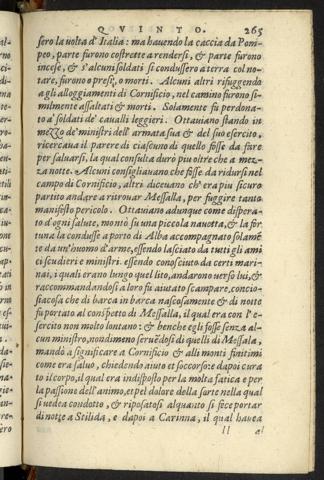 QVINTO. 265
sero la uolta d'Italia: ma hauendo la caccia da Pom=
peo, parte furono costrette a rendersi, & parte furono
incese, & s'alcuni soldati si condussero a terra col no=
tare, furono o presi, o morti. Alcuni altri rifuggendo
a gli alloggiamenti di Cornificio, nel camino furono si=
milmente assaltati & morti. Solamente fu perdona=
to a soldati de' caualli leggieri. Ottauiano stando in
mezzo de' ministri dell'armata sua & del suo esercito,
ricercaua il parere di ciascuno di quello fosse da fare
per saluarsi, la qual consulta durò piu oltre che a mez=
za notte. Alcuni consigliauano che fosse da ridursi nel
campo di Cornificio, altri diceuano ch'era piu sicuro
partito andare a ritrouar Messalla, per fuggire tanto
manifesto pericolo. Ottauiano adunque come dispera=
to d'ogni salute, montò su una piccola nauetta, & la for
tuna lo condusse a porto di Alba accompagnato solamẽ
te da un'huomo d'arme, essendo lasciato da tutti gli ami
ci scudieri e ministri. essendo conosciuto da certi mari=
nai, i quali erano lungo quel lito, andarono verso lui, &
raccommandandosi a loro fu aiutato scampare, concio=
siacosa che di barca in barca nascosamente & di notte
fu portato al conspetto di Messalla, il qual era con l'e=
sercito non molto lontano: & benche egli fosse senza al=
cun ministro, nondimeno seruẽdosi di quelli di Messala,
mandò a significare a Cornificio & alli monti finitimi
come era saluo, chiedendo aiuto et soccorso: e dapoi cura
to il corpo, il qual era indisposto per la molta fatica e per
la passione dell'animo, et pel dolore della sorte nella qual
si uedea condotto, & riposatosi alquanto si fece portar
di notte a Stilida, e dapoi a Carinna, il qual hauea
II al